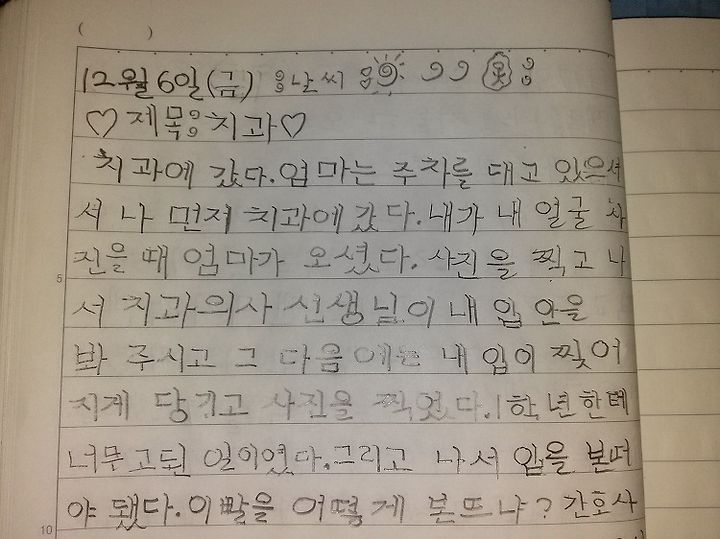 (
12월 6일(금) 날씨
♡제목:치과♡
치과에 갔다.엄마는 주차를 대고 있으셔
서 나 먼저 치과에 갔다.내가 내 얼굴 사
진을 때 엄마가 오셨다.사진을 찍고 나
서 치과의사 선생님이 내 입 안을
봐 주시고 그 다음에는 내 입이 찢어
지게 당기고 사진을 찍었다.1학년한테
너무 고된 일이였다.그리고 나서 입을 본떠
야 됐다.이빨을 어떻게 본뜨냐? 간호사
5
10